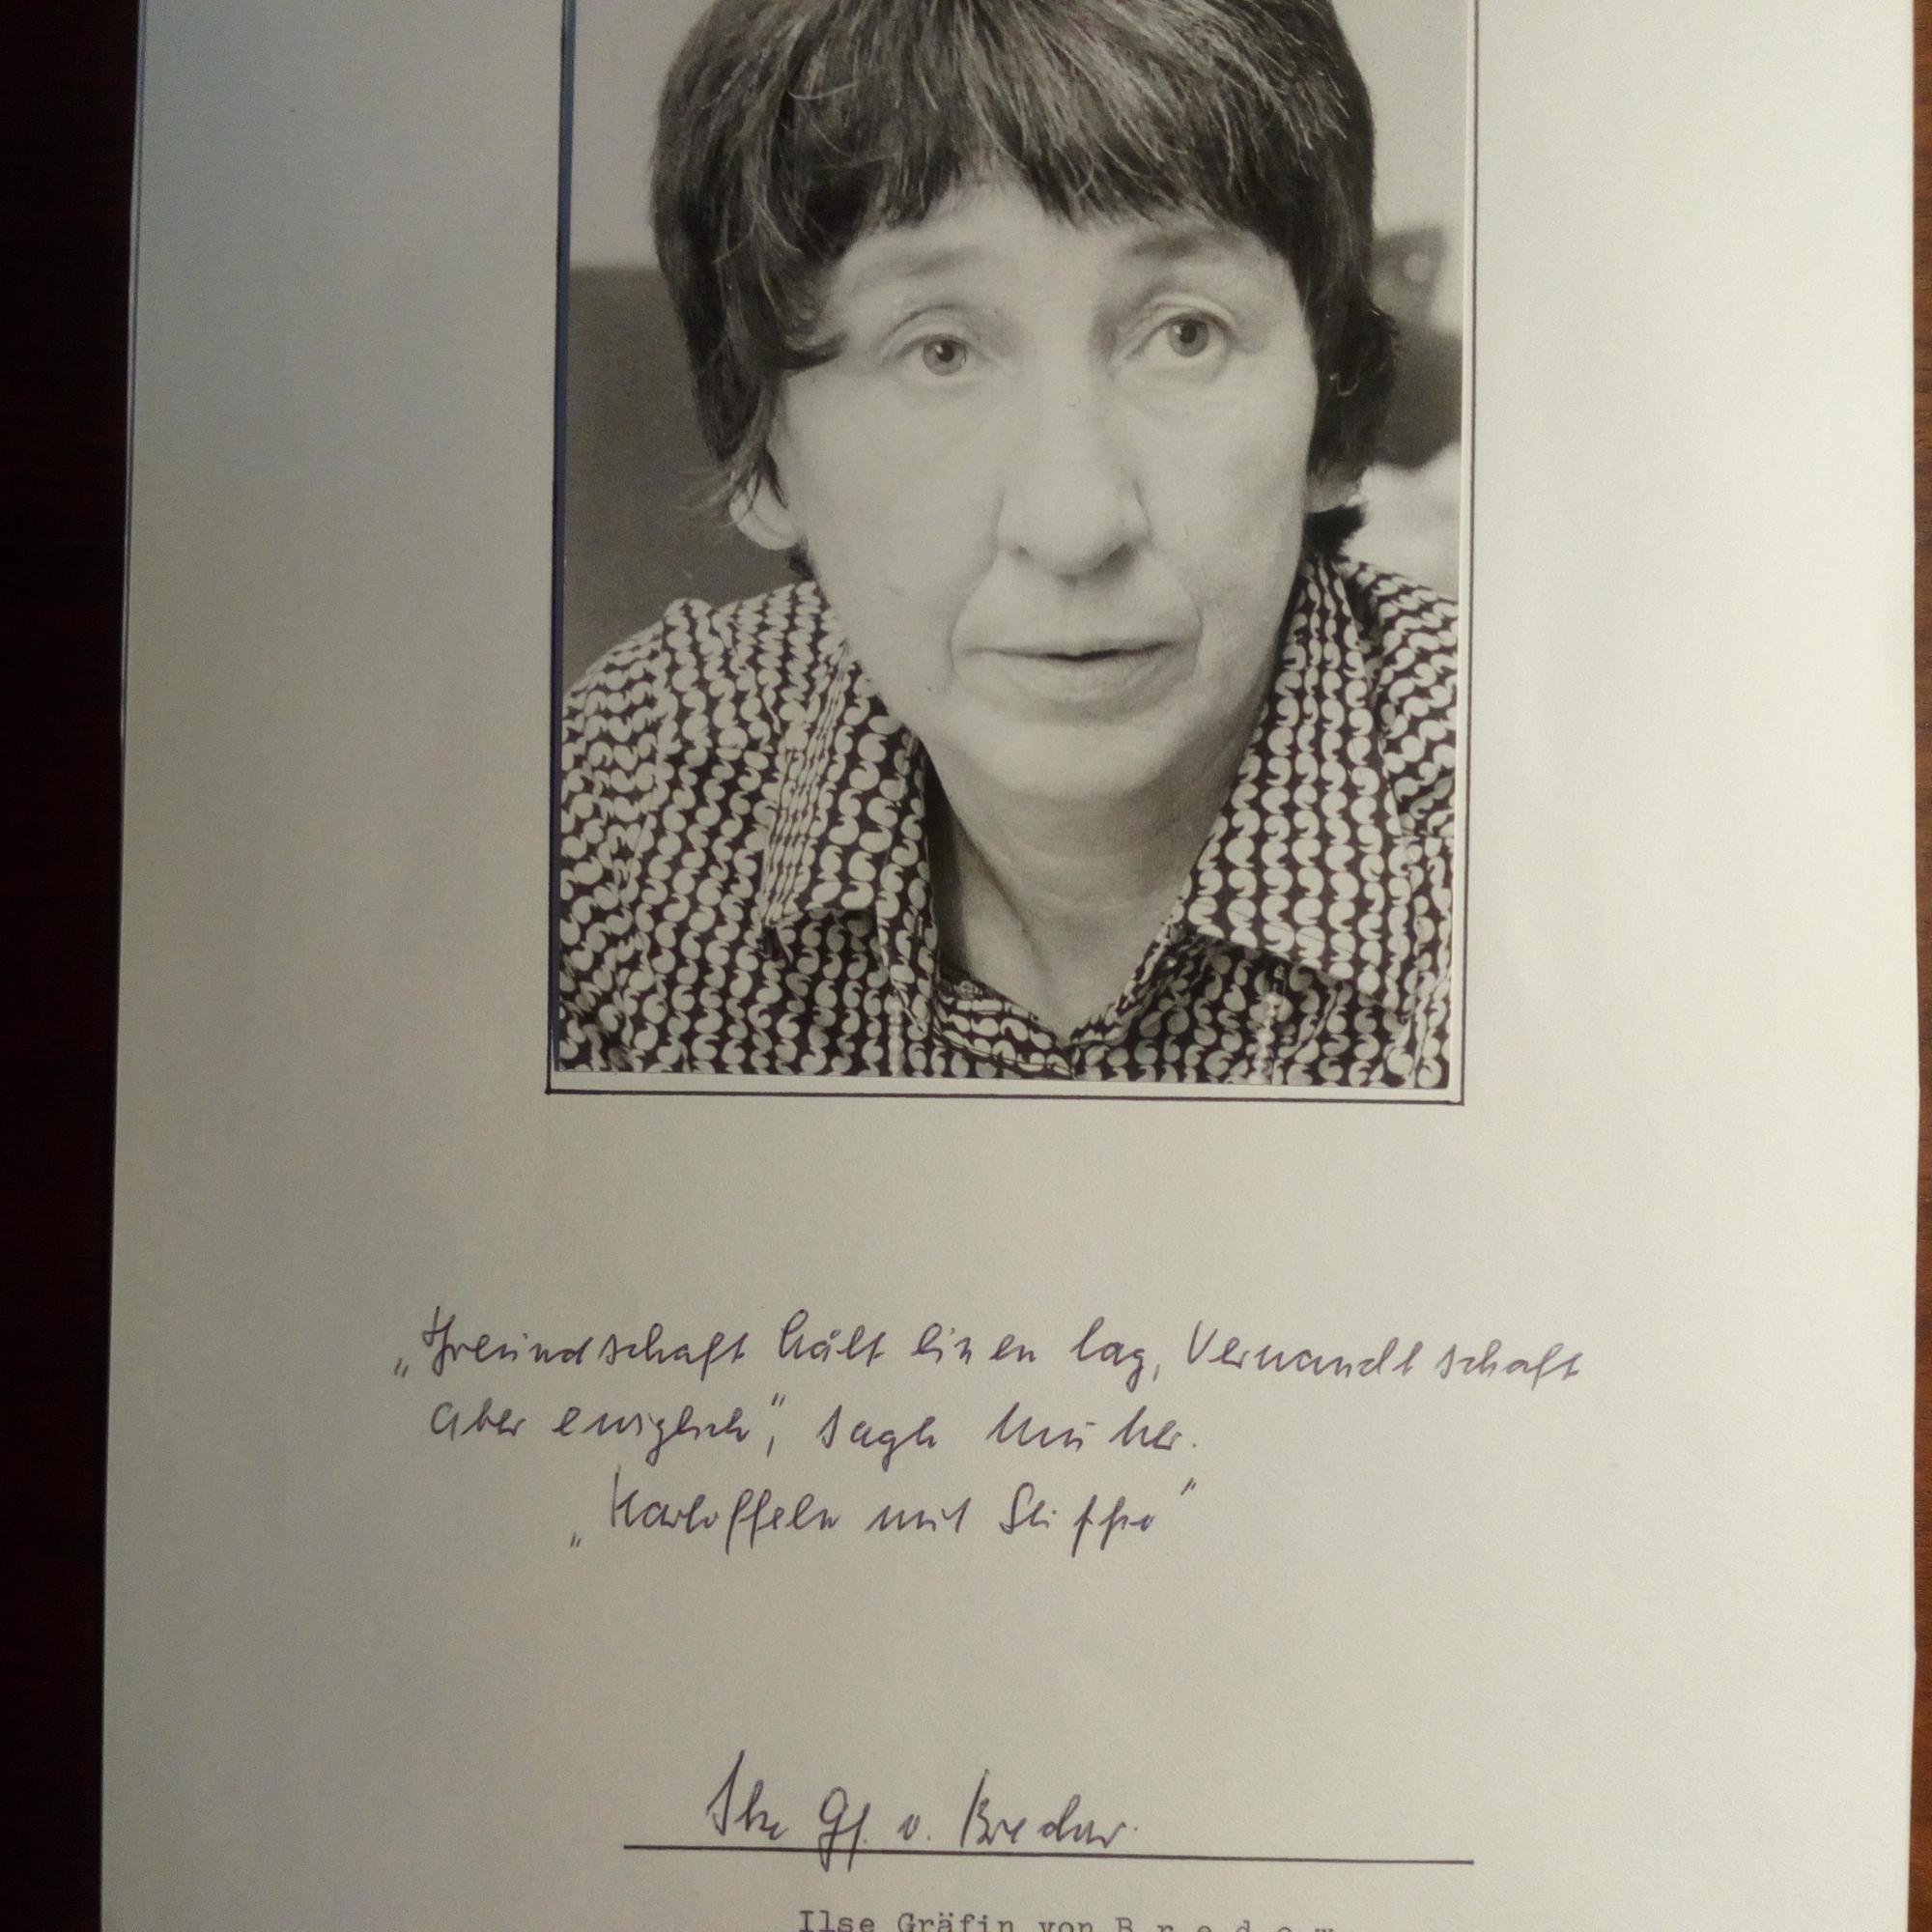 „Freundschaft hält einen Tag, Verwandtschaft
aber ewiglich“, sagte Mutter.
„Kartoffeln mit Stippe“
Ilse Gf. v. Bredow.
Ilse Gräfin von B r e d o w